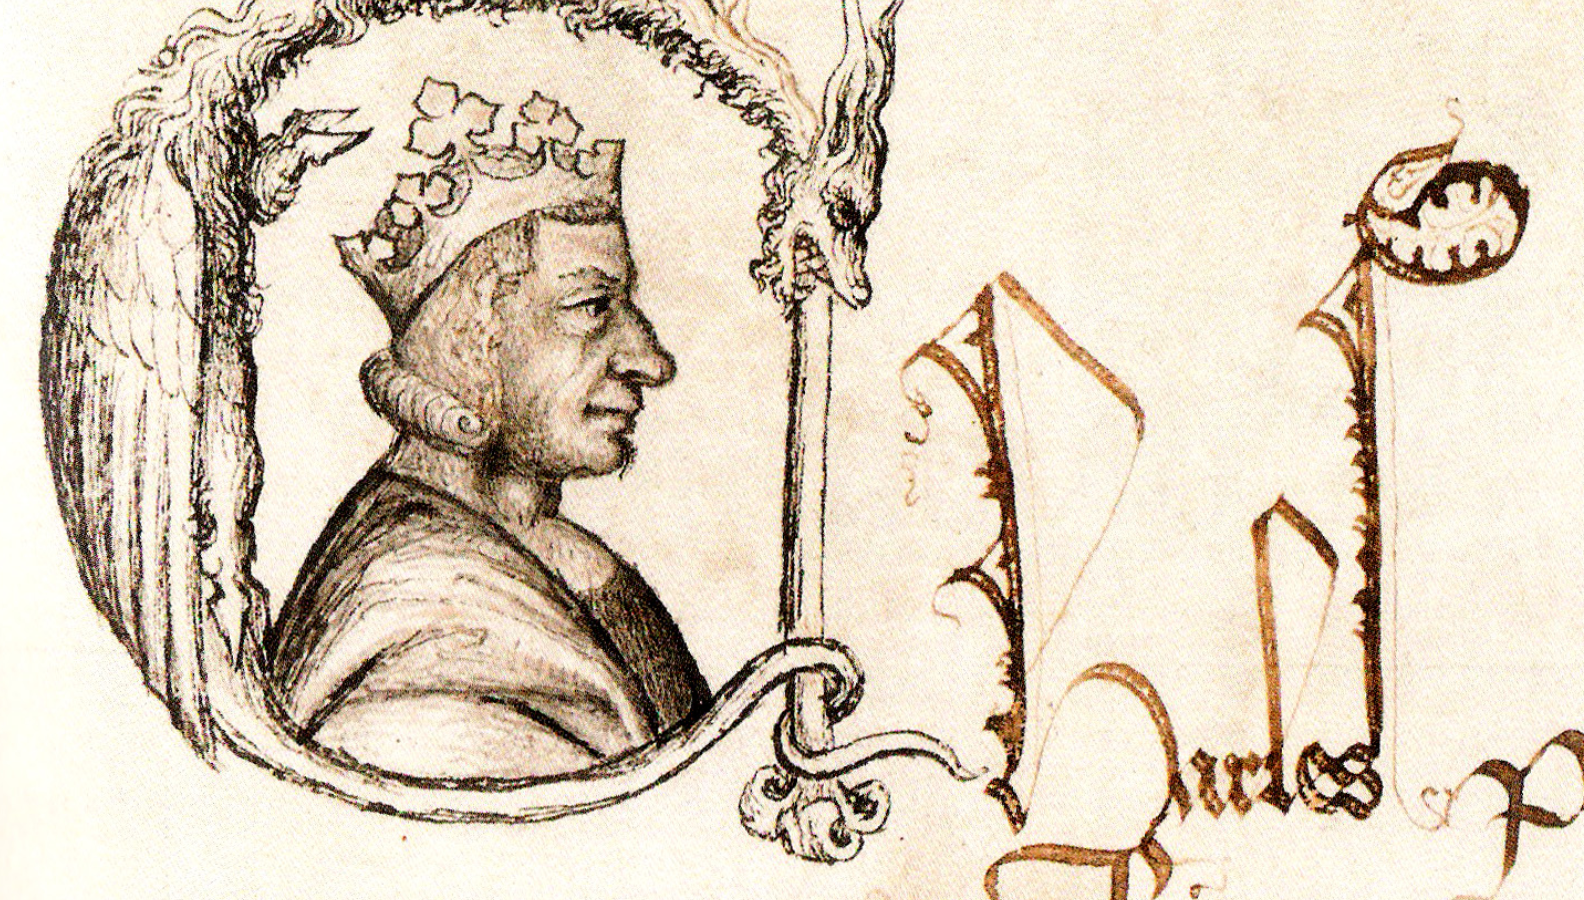 Charles p